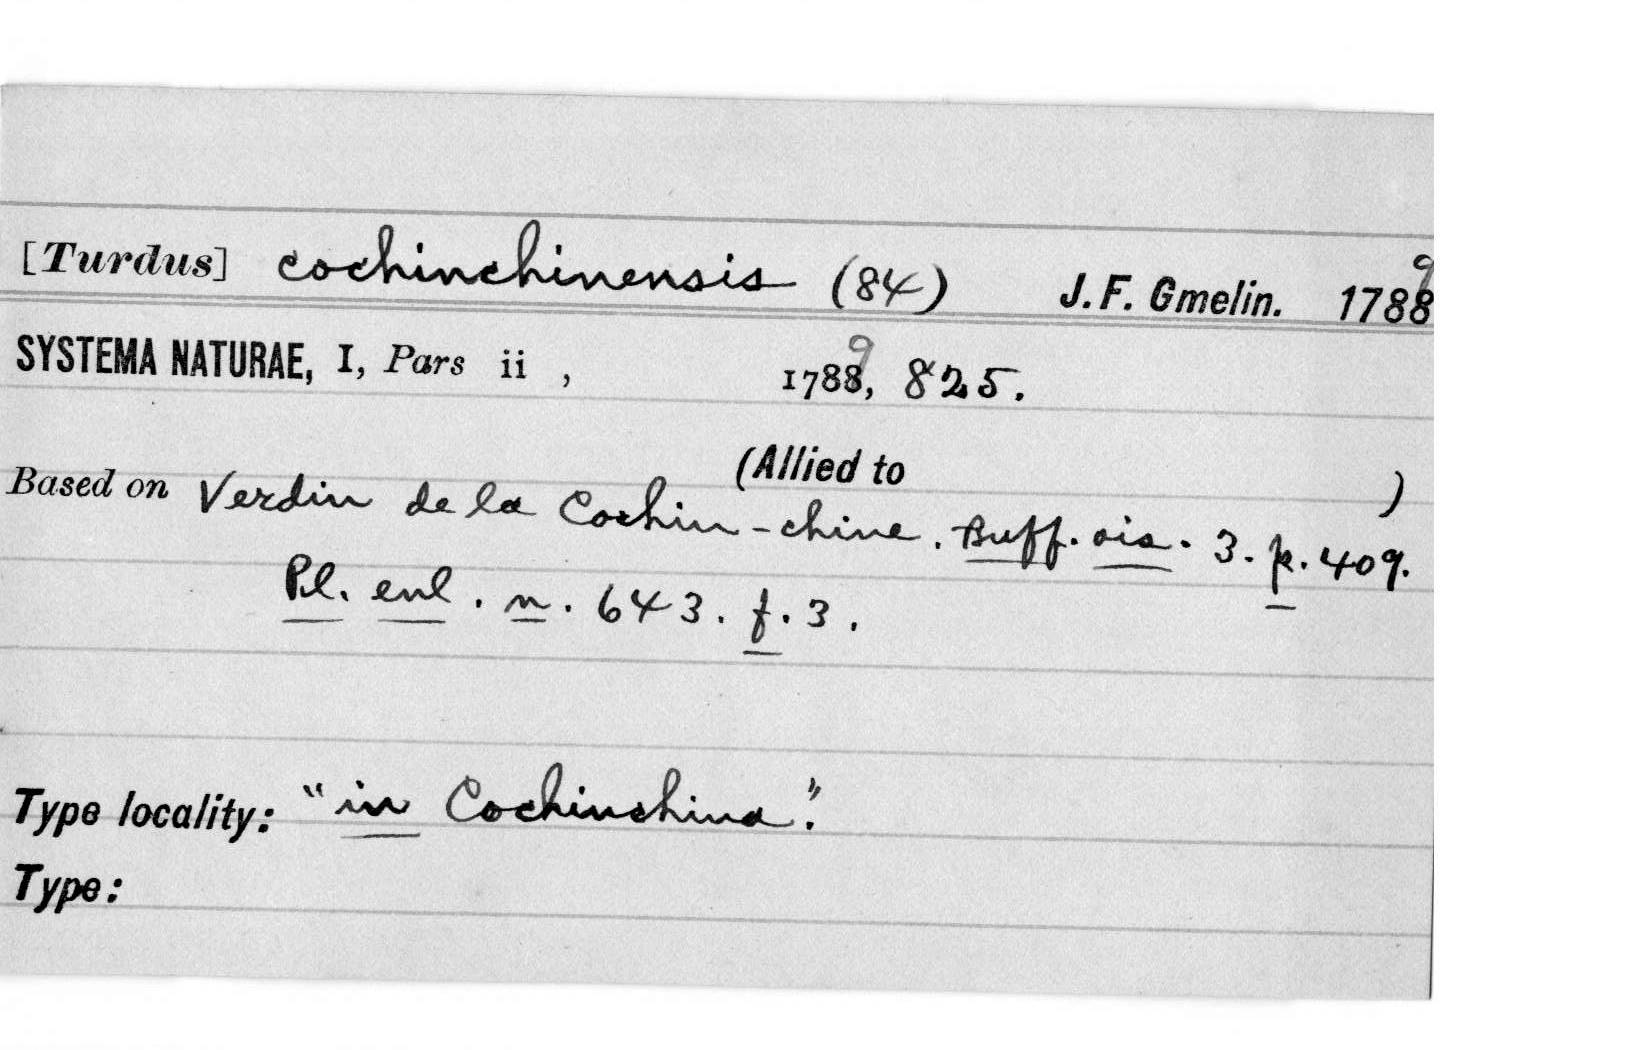 [Turdus] cochinchinensis (84) J. F. Gmelin. 1789
SYSTEMA NATURAE, I, Pars ii , 1789, 825.
(Allied to )
Based on Verdin de la Cochin-chine. Buff. ois. 3. p. 409.
Pl. enl. n. 643. f. 3.
Type locality: "in Cochinchina".
Type: